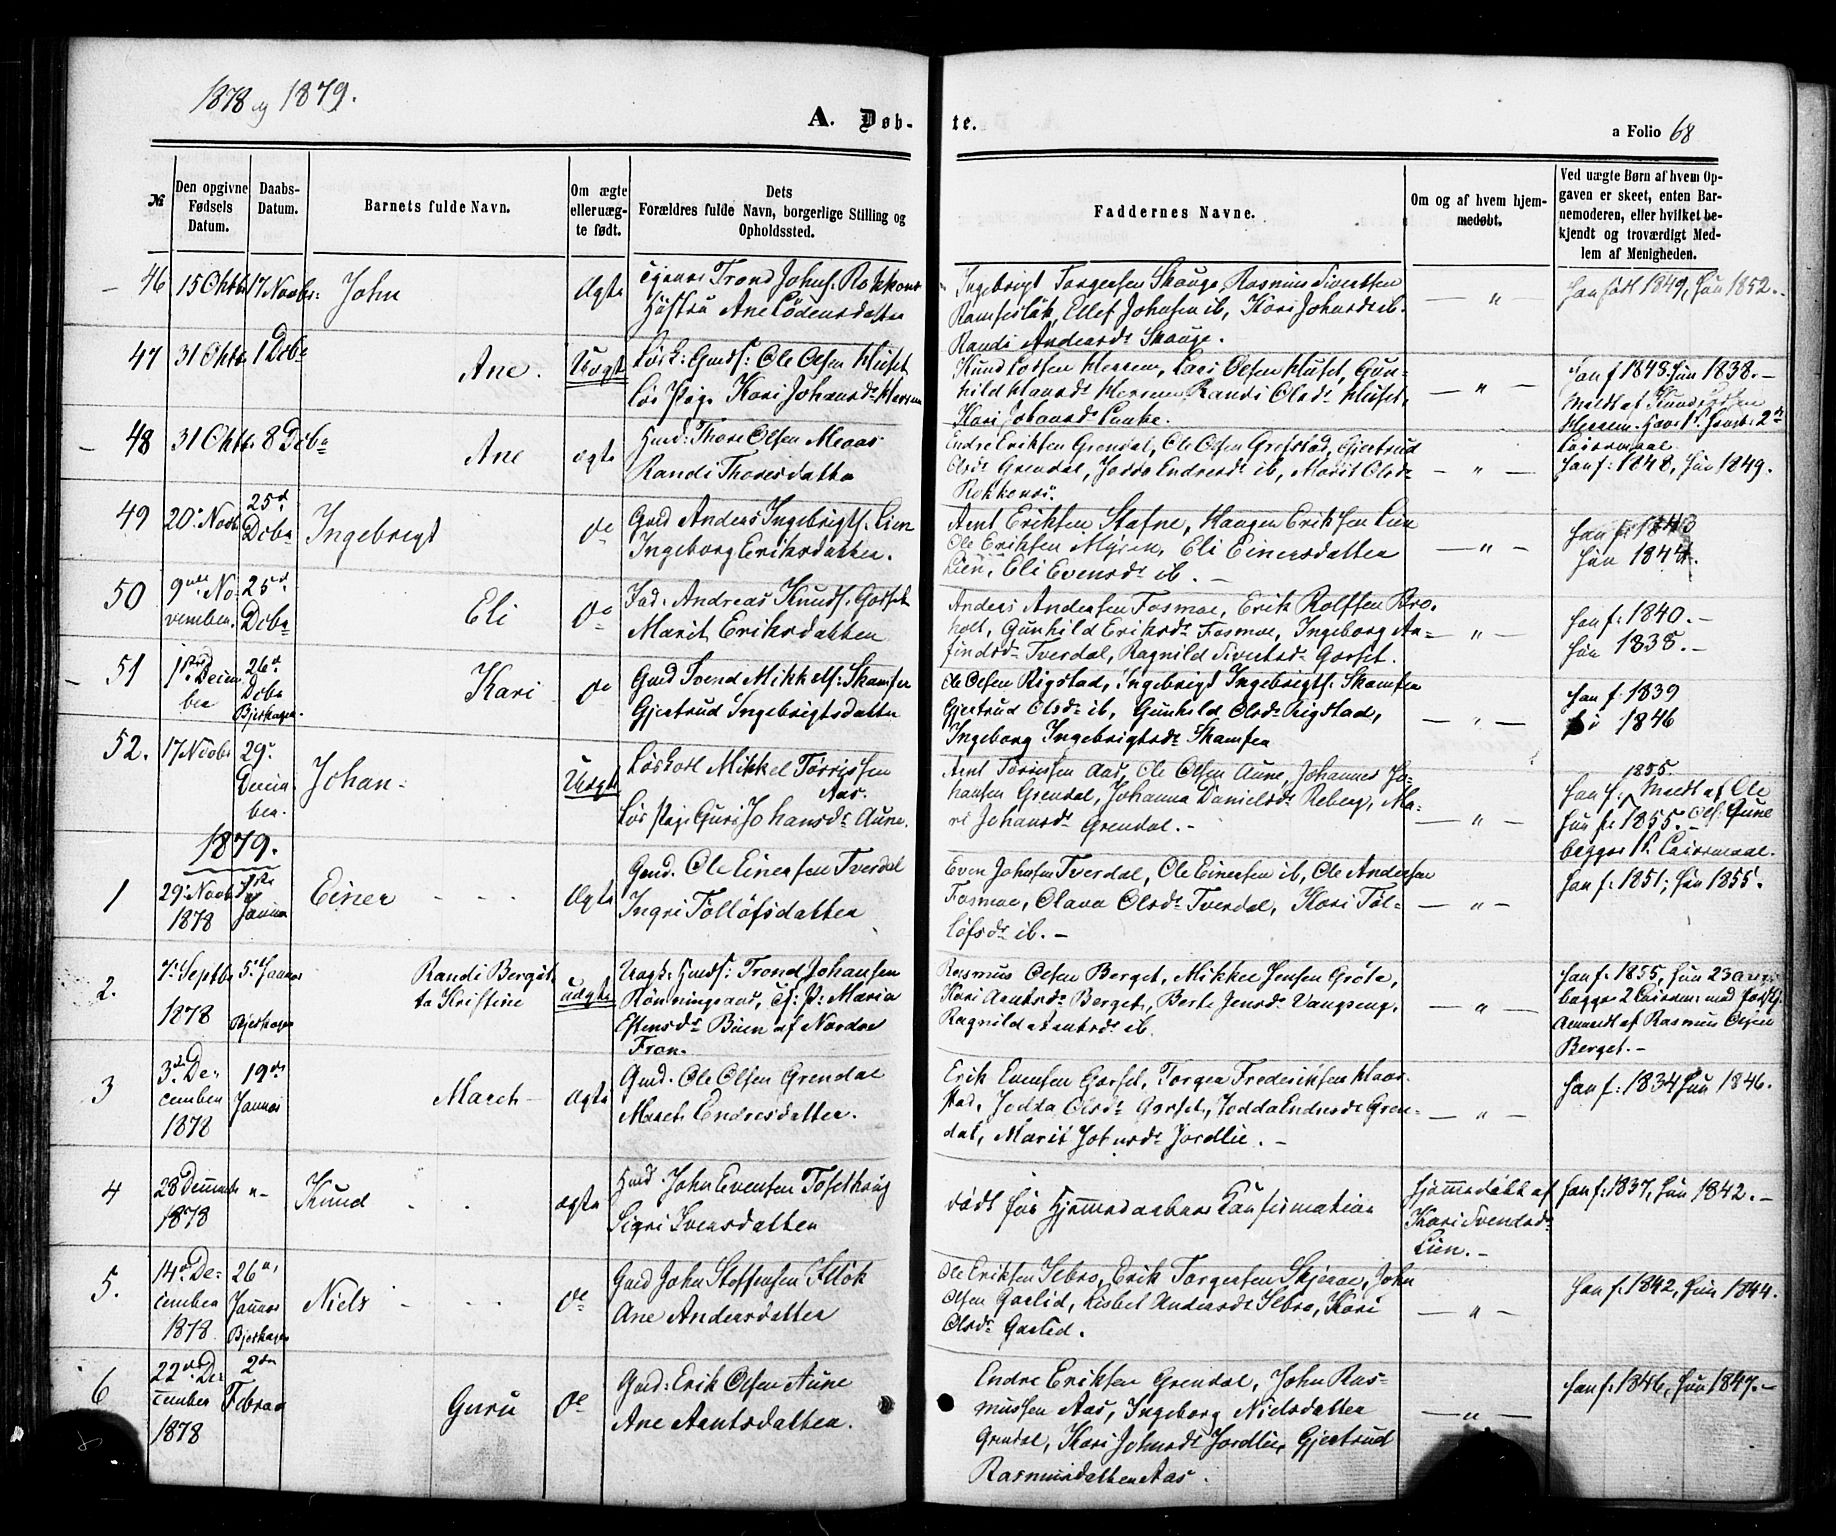 1878 og 1879.
A. Døb-
te.
a Folio 68
№
Den opgivne
Fødsels
Datum.
Daabs-
Datum.
Barnets fulde Navn.
Om ægte
eller uæg-
te født.
Dets
Forældres fulde Navn, borgerlige Stilling og
Opholdssted.
Faddernes Navne.
Om og af hvem hjem-
medøbt.
Ved uægte Børn af hvem Op-
gaven er skeet, enten Bar-
nemoderen, eller hvilket be-
kjendt og troværdigt Med-
lem af Menigheden.
46 15 Oktbr 17 Novbr: John Ægte
Trond Johns.
Ane Lødensdatter
Ingebrigt Torgersen Skauge Rasmus Sivertsen
Ramsesløk, Ellef Johnsen ib, Kari Johnsdr ib.
Randi Andersdr Skauge.
— " —
Han født 1849, Hun 1852.
47 31 Oktbr 1 Dcbr
Ane. Uægte
Ole Olsen Huset
Løs Pige Kari Johansdr Herrem
Knud Herrem, Lars Olsen Huset, Gun-
hild Hansdr Herrem, Randi Olsdr Huset,
Kari Johansdr
— " —
Han f. 1848, Hun 1838. —
Meldt af Knud
Herrem. Hans 1ste Hendes 2det
Leiermaal.
48 31 Oktbr 8 Dcbr
Ane ægte
Hmd: Thore Olsen Moas
Randi Thoresdatter
Endre Eriksen Grendal, Ole Olsen Grefstad, Gjertrud
Olsdr Grendal, Jodda Endresdr ib, Marit Olsdr
— " —
Han f: 1848, Hun 1849.
49 20 Novbr 25de
Dcbr
Ingebrigt do
Gmd Anders Ingebrigts. Lien
Ingeborg Eriksdatter.
Arnt Eriksen Stafne, Haagen Eriksen Lien
Ole Eriksen Myren, Eli Einersdatter
Lien, Eli Evensdr ib. —
— " —
Han f: 1843
Hun 1844.
50 9nde No-
vember. 25de
Dcbr
Eli do
Ind. Andreas Knuds. Gorset
Marit Eriksdatter
Anders Andersen Fosmoe, Erik Rolffsen Bro-
holt, Gunhild Eriksdr Fosmoe, Ingeborg Ar-
findsdr Tverdal, Ragnild Sivertsdr Gorset.
— " —
Han f: 1840. —
Hun 1838. —
51 1ste Decem-
ber 26de
Dcbr
Bjerkagen.
Kari do
Gmd Svend Mikkels: Skamfer
Gjertrud Ingebrigtsdatter
Ole Olsen Rigstad, Ingebrigt Ingebrigts. Skamfer
Gjertrud Olsdr ib, Gunhild Olsdr Rigstad,
Ingeborg Ingebrigtsdr Skamfer
— " —
Han f: 1839
1846
52. 17 Novbr 29de
Decem-
ber.
Johan - Uægte
Løskarl Mikkel Torrissen
Aas.
Løs Pige Guri Johansdr Aune.
Arnt Torrissen Aas, Ole Olsen Aune, Johannes Jo-
hansen Grendal, Johanna Danielsdr Reberg, Ma-
ri Johansdr Grendal. —
— " —
1855.
Han f. Meldt af Ole
Hun f: 1855. Ols: Aune
begges 1ste Leiermaal.
1879.
1 29de Novbr
1878 1ste
Januar
Einer Ægte
Gmd. Ole Einersen Tverdal
Ingri Tollofsdatter
Even Johnsen Tverdal, Ole Einersen ib, Ole Andersen
Fosmoe, Olava Olsdr Tverdal, Kari Tol-
lofsdr ib. —
— " —
Han f: 1851; Hun 1855.
2. 7de Septbr
1878 5te Januar
Bjerkagen
Randi Bergit-
ta Kristine uægte
Ungk: Gmds: Trond Johansen
Rønningsaas, Maria
Estensdr Buen af Nordre
Fron.
Rasmus Olsen Berget, Mikkel Jensen Grøte,
Kari Arntsdr Berget, Berte Jensdr Vangseng,
Ragnild Arntsdr ib.
— " —
Han f. 1855, Hun 23
begges 2 Leierm:
Anmeldt af Rasmus Olsen
Berget. —
3 3de De-
cember
1878 19de
Januar
Maret - Ægte
Gmd. Ole Olsen Grendal
Maret Endresdatter.
Erik Evensen Gorset, Torger Frederiksen Haar-
stad, Jodda Olsdr Gorset, Jodda Endresdr Gren-
dal, Marit Johnsdr Jordlie. —
— " —
Han f: 1834 Hun 1846.
4 28 Decembr
1878 "-
Knud ægte
Hmd. John Evensen Tosethoug
Sigri Svensdatter
Død før Hjemmedaabens Konfirmation
Hjemmedøbt af
Kari Svendsdr
Lien. —
Han f: 1837, Hun 1842. —
5. 14de De-
cember
1878 26de
Januar
Bjerkagen
Niels do
Gmd John Steffensen Fløk
Ane Andersdatter
Ole Eriksen Sebro, Erik Torgersen Skjeroe, John
Olsen Garlid, Lisbet Andersdr Sebro, Kari
Olsdr Garlid.
— " —
Han f. 1842, Hun 1844.
6 22de De-
cember
1878 2den
Februar
Guru do
Gmd: Erik Olsen Aune
Ane Arntsdatter.
Endre Eriksen Grendal, John Ras-
mussen Aas, Ingeborg Nielsdatter
Grendal, Kari Johnsdr Jordlie, Gjertrud
Rasmusdatter Aas.
— " —
Han f: 1846, Hun 1847. —